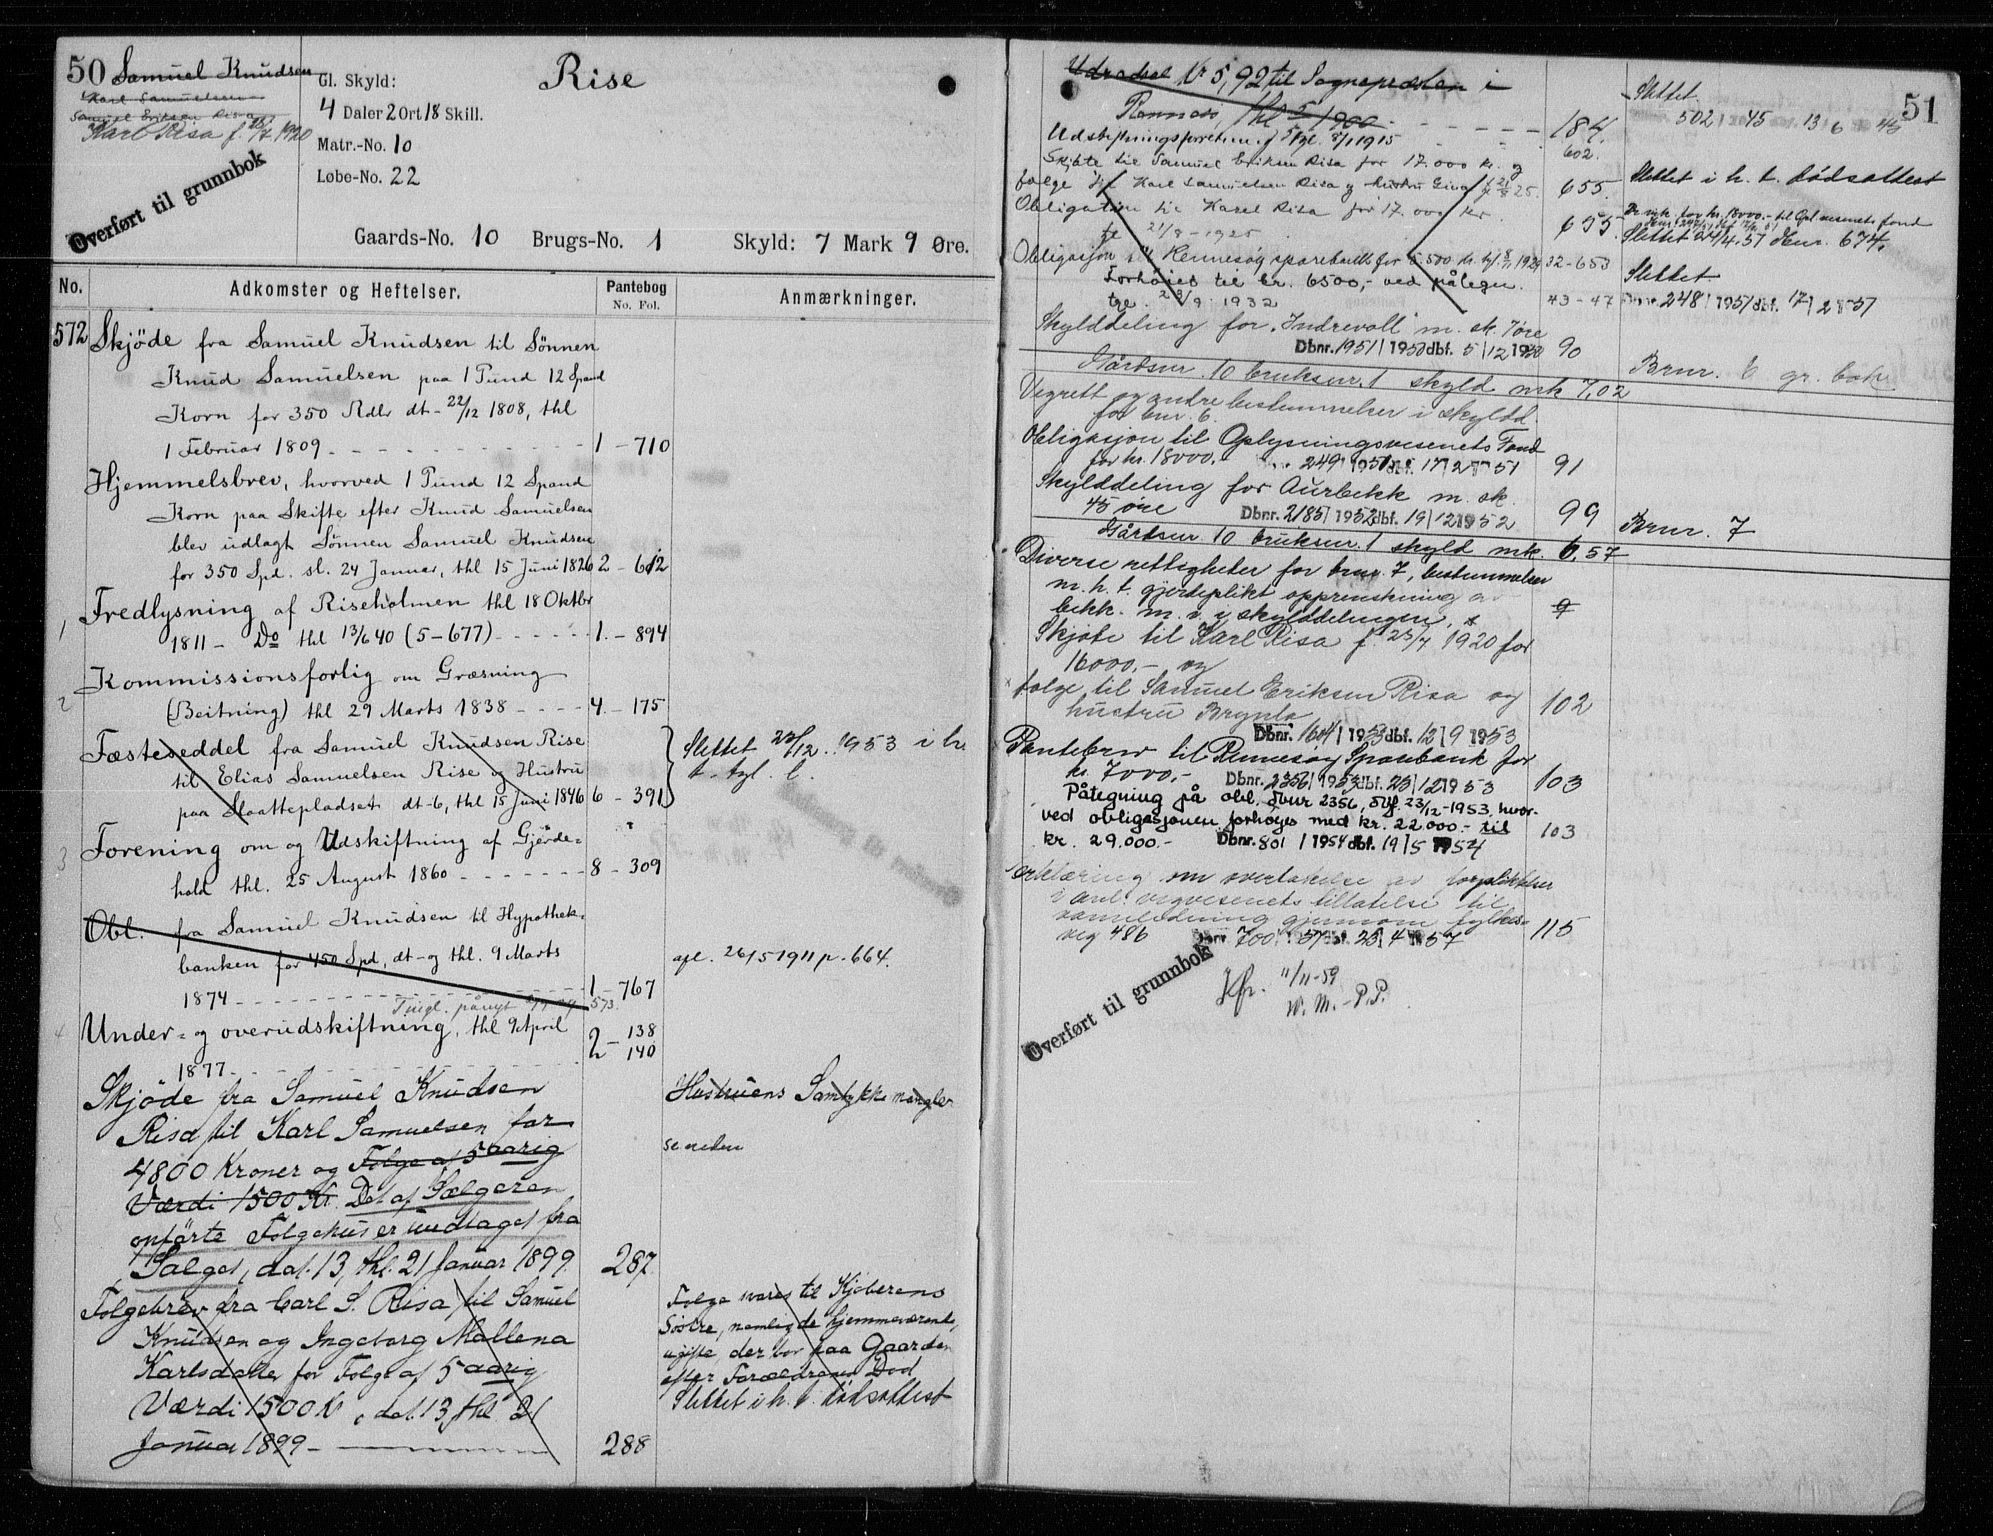 50
Samuel Knudsen
Karl Samuelsen
Samuel Eriksen Risa
Karl Risa f. 23/7 1920
Overført til grunnbok
Gl. Skyld:
4 Daler 2 Ort 18 Skill.
Matr.-No. 10
Løbe-No. 22
Rise
Gaards-No. 10 Brugs-No. 1 Skyld: 7 Mark 9 Øre.
No. Adkomster og Heftelser. Pantebog No. Fol. Anmærkninger.
572 Skjöde fra Samuel Knudsen til Sönnen
Knud Samuelsen paa 1 Pund 12 Spand
Korn for 350 Rdlr dt- 22/12 1808, thl
1 Februar 1809 1 - 710
Hjemmelsbrev, hvorved 1 Pund 12 Spand
Korn paa Skifte efter Knud Samuelsen
blev udlagt Sönnen Samuel Knudsen
for 350 Spd. sl. 24 Januar, thl 15 Juni 1826 2 - 612
1 Fredlysning af Riseholmen thl 18 Oktbr
1811 - Do thl 13/6 40 (5-677) 1. - 894
2 Kommissionsforlig om Græsning
(Beitning) thl 29 Marts 1838 4. - 175
Fæsteseddel fra Samuel Knudsen Rise
til Elias Samuelsen Rise og Hustru
paa Slaattepladset dt-6, thl 15 Juni 1846 6 - 391
Slettet 23/12 1953 i h.
t. tgl. l.
3 Forening om og Udskiftning af Gjerde=
hold thl. 25 August 1860 8 - 309
Obl. fra Samuel Knudsen til Hypothek-
banken for 450 Spd, dt- og thl. 9 Marts
1874 1 - 767
Tingl. pånyt 573.
afl. 26/5 1911 p. 664.
4 Under- og overudskiftning, thl 9 April
1877 2 - 138 140
Skjöde fra Samuel Knudsen
Risa til Karl Samuelsen for
4800 Kroner og Folge af 5 aarig
Værdi 1500 Kr. Det af Sælgeren
opförte Folgehus er undtaget fra
Salget, dat. 13, thl. 21 Januar 1899. 287
Hustruens Samtykke mangler
Folgebrev fra Carl S. Risa til Samuel
Knudsen og Ingeborg Mallena
Karlsdatter for Folge af 5 aarig
Værdi 1500 Kr, dat. 13, thl. 21
Januar 1899 - 288
Folge svares til Kjöberens
Söstre, nemlig de hjemmeværende,
ugifte, der bor paa Gaarden
efter Foræeldrenes Död
Slettet i h. t. dödsattest
51
Udradsel Nr 5, 92 til Sognepresten i
Rennesö, thl 5/1 1900 184.
Slettet.
502 | 45 13 6 45
Udskiftningsforretning tgl. 8/1 1915 602.
Skjöte til Samuel Eriksen Risa for 17.000 kr. og
folge til Karl Samuelsen Risa og hustru Gina 21/8 25. 655.
Slettet i h. t. dödsattest
Obligation til Karl Risa for 17.000 kr.
tgl 21/8 - 1925 655.
Slettet 24/4.51 Hnr. 674.
Obligasjon til Rennesøy sparebank for 5.500 kr. 1929 32-653
Forhöies til kr. 6500,- ved påtegn.
tgl. 28/9 1932 43-47
Slettet
Dbnr. 248 | 1951 dbf. 17 | 2 1951
Skylddeling for "Indrevoll" m. sk. 7 øre
Dbnr. 1951 | 1950 dbf. 5 | 12 1950 90
Brnr. 6 gr. bok
Gårdsnr. 10 bruksnr. 1 skyld mk 7,02
Vegrett og andre bestemmelser i skyldd.
for bnr. 6.
Obligasjon til Oplysningsvesenets Fond
for kr. 18000.- 249 | 1951 dbf. 17 | 2 1951 91
Skylddeling for Aurbekk m. sk.
45 øre Dbnr. 2185 | 1952 dbf. 19 | 12 1952 99
Brnr. 7
Gårdsnr. 10 bruksnr. 1 skyld mk. 6,57
Diverse rettigheter for brnr. 7, bestemmelser
m. h. t. gjerdeplikt opprenskning av
bekk. m. v. i skylddelingen.
Skjøte til Karl Risa f. 23/7 1920 for
16000,- og
folge til Samuel Eriksen Risa og 102
hustru Brynla
Dbnr. 1604 | 1953 dbf. 12 | 9 1953
Pantebrev til Rennesøy Sparebank for
kr. 7000,- Dbnr. 2356 | 1953 dbf. 23 | 12 1953 103
Påtegning på obl. dbnr 2356, dbf. 23/12-1953, hvor-
ved obligasjonen forhøyes med kr. 22.000.- til 103
kr. 29.000.- Dbnr. 801 | 1954 dbf. 19 | 5 1954
Erklæring om overtakelse av forplikter
i anl. vegvesenets tillatelse til
vannledning gjennom fylkes-
veg 486 Dbnr. 700 | 57 dbf. 25 | 4 1957 115
Overført til grunnbok
Kfr. 11/11-59
W. M. - P. P.